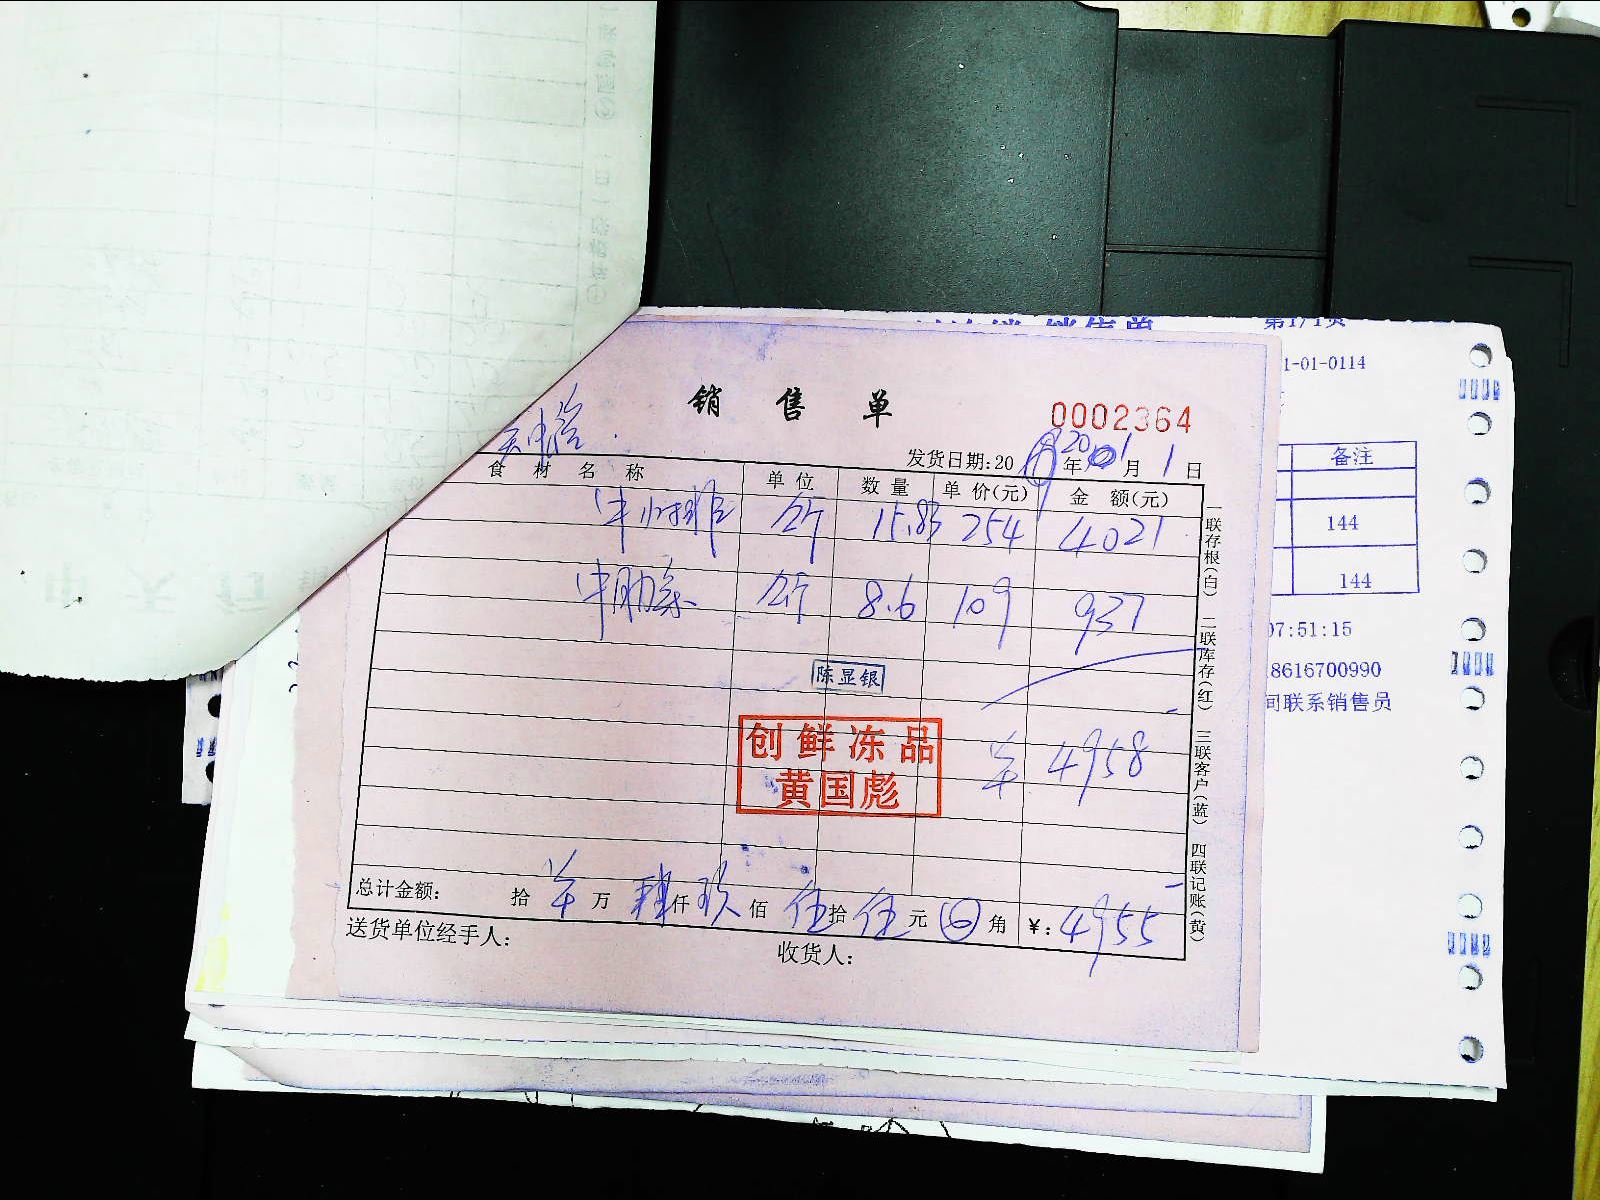 第1/1页
1-01-0114
销售单
0002364
发货日期:20 20年1月1日
食材名称 单位 数量 单价(元) 金额(元)
牛小排 公斤 15.83 254 4021
牛肋条 公斤 8.6 109 937
陈显银
创鲜冻品
黄国彪
羊 4958
总计金额: 拾 羊 万 肆 仟 玖 佰 伍 拾 伍 元 角 ¥: 4955
送货单位经手人: 收货人:
一联存根(白) 二联库存(红) 三联客户(蓝) 四联记账(黄)
备注
144
144
07:51:15
8616700990
间联系销售员